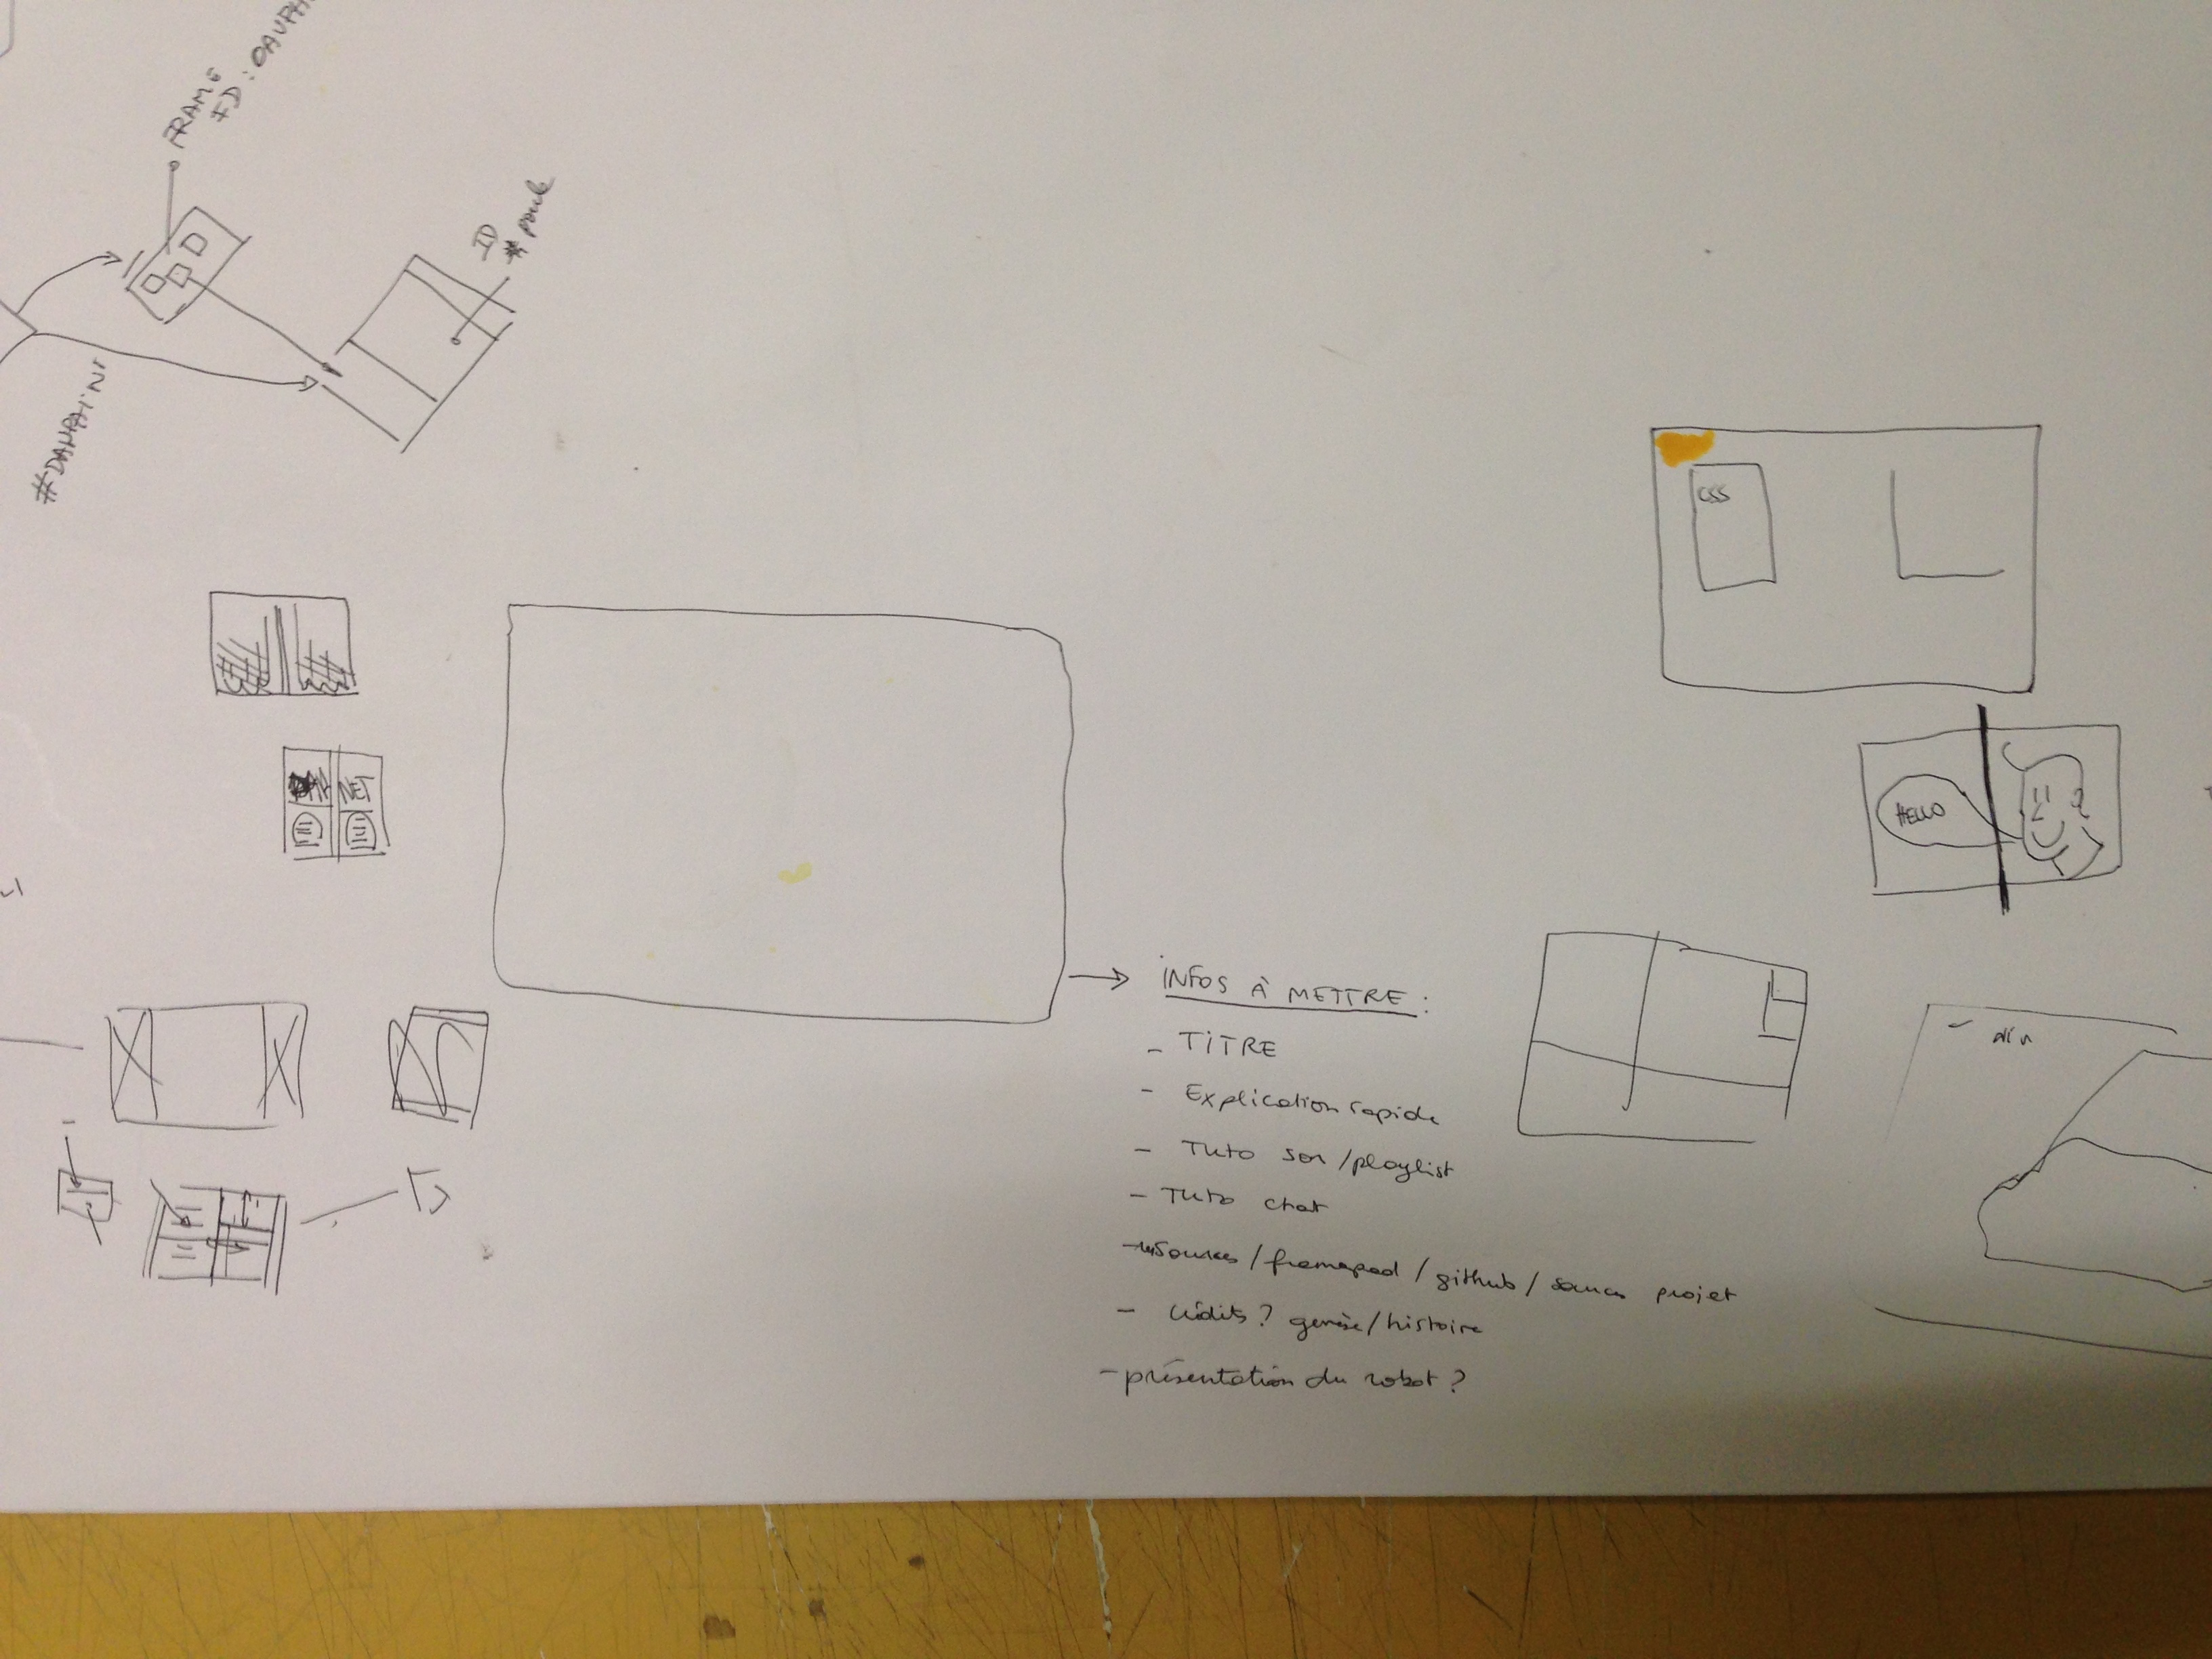 FRAME
ID
CSS
NET
HELLO
INFOS À METTRE :
- TITRE
- Explication rapide
- Tuto son/playlist
- Tuto chat
- resources / framapad / github / sources projet
- crédits ? genèse/histoire
- présentation du robot ?
div